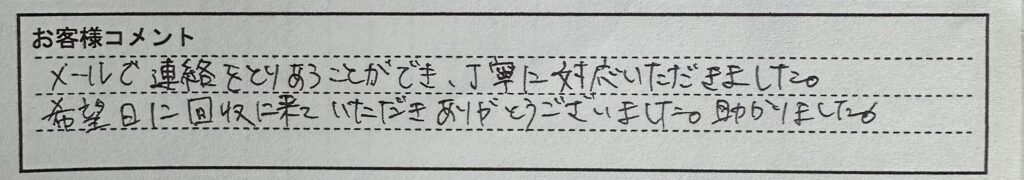 お客様コメント
メールで連絡をとりあうことができ、丁寧に対応いただきました。
希望日に回収に来ていただきありがとうございました。助かりました。